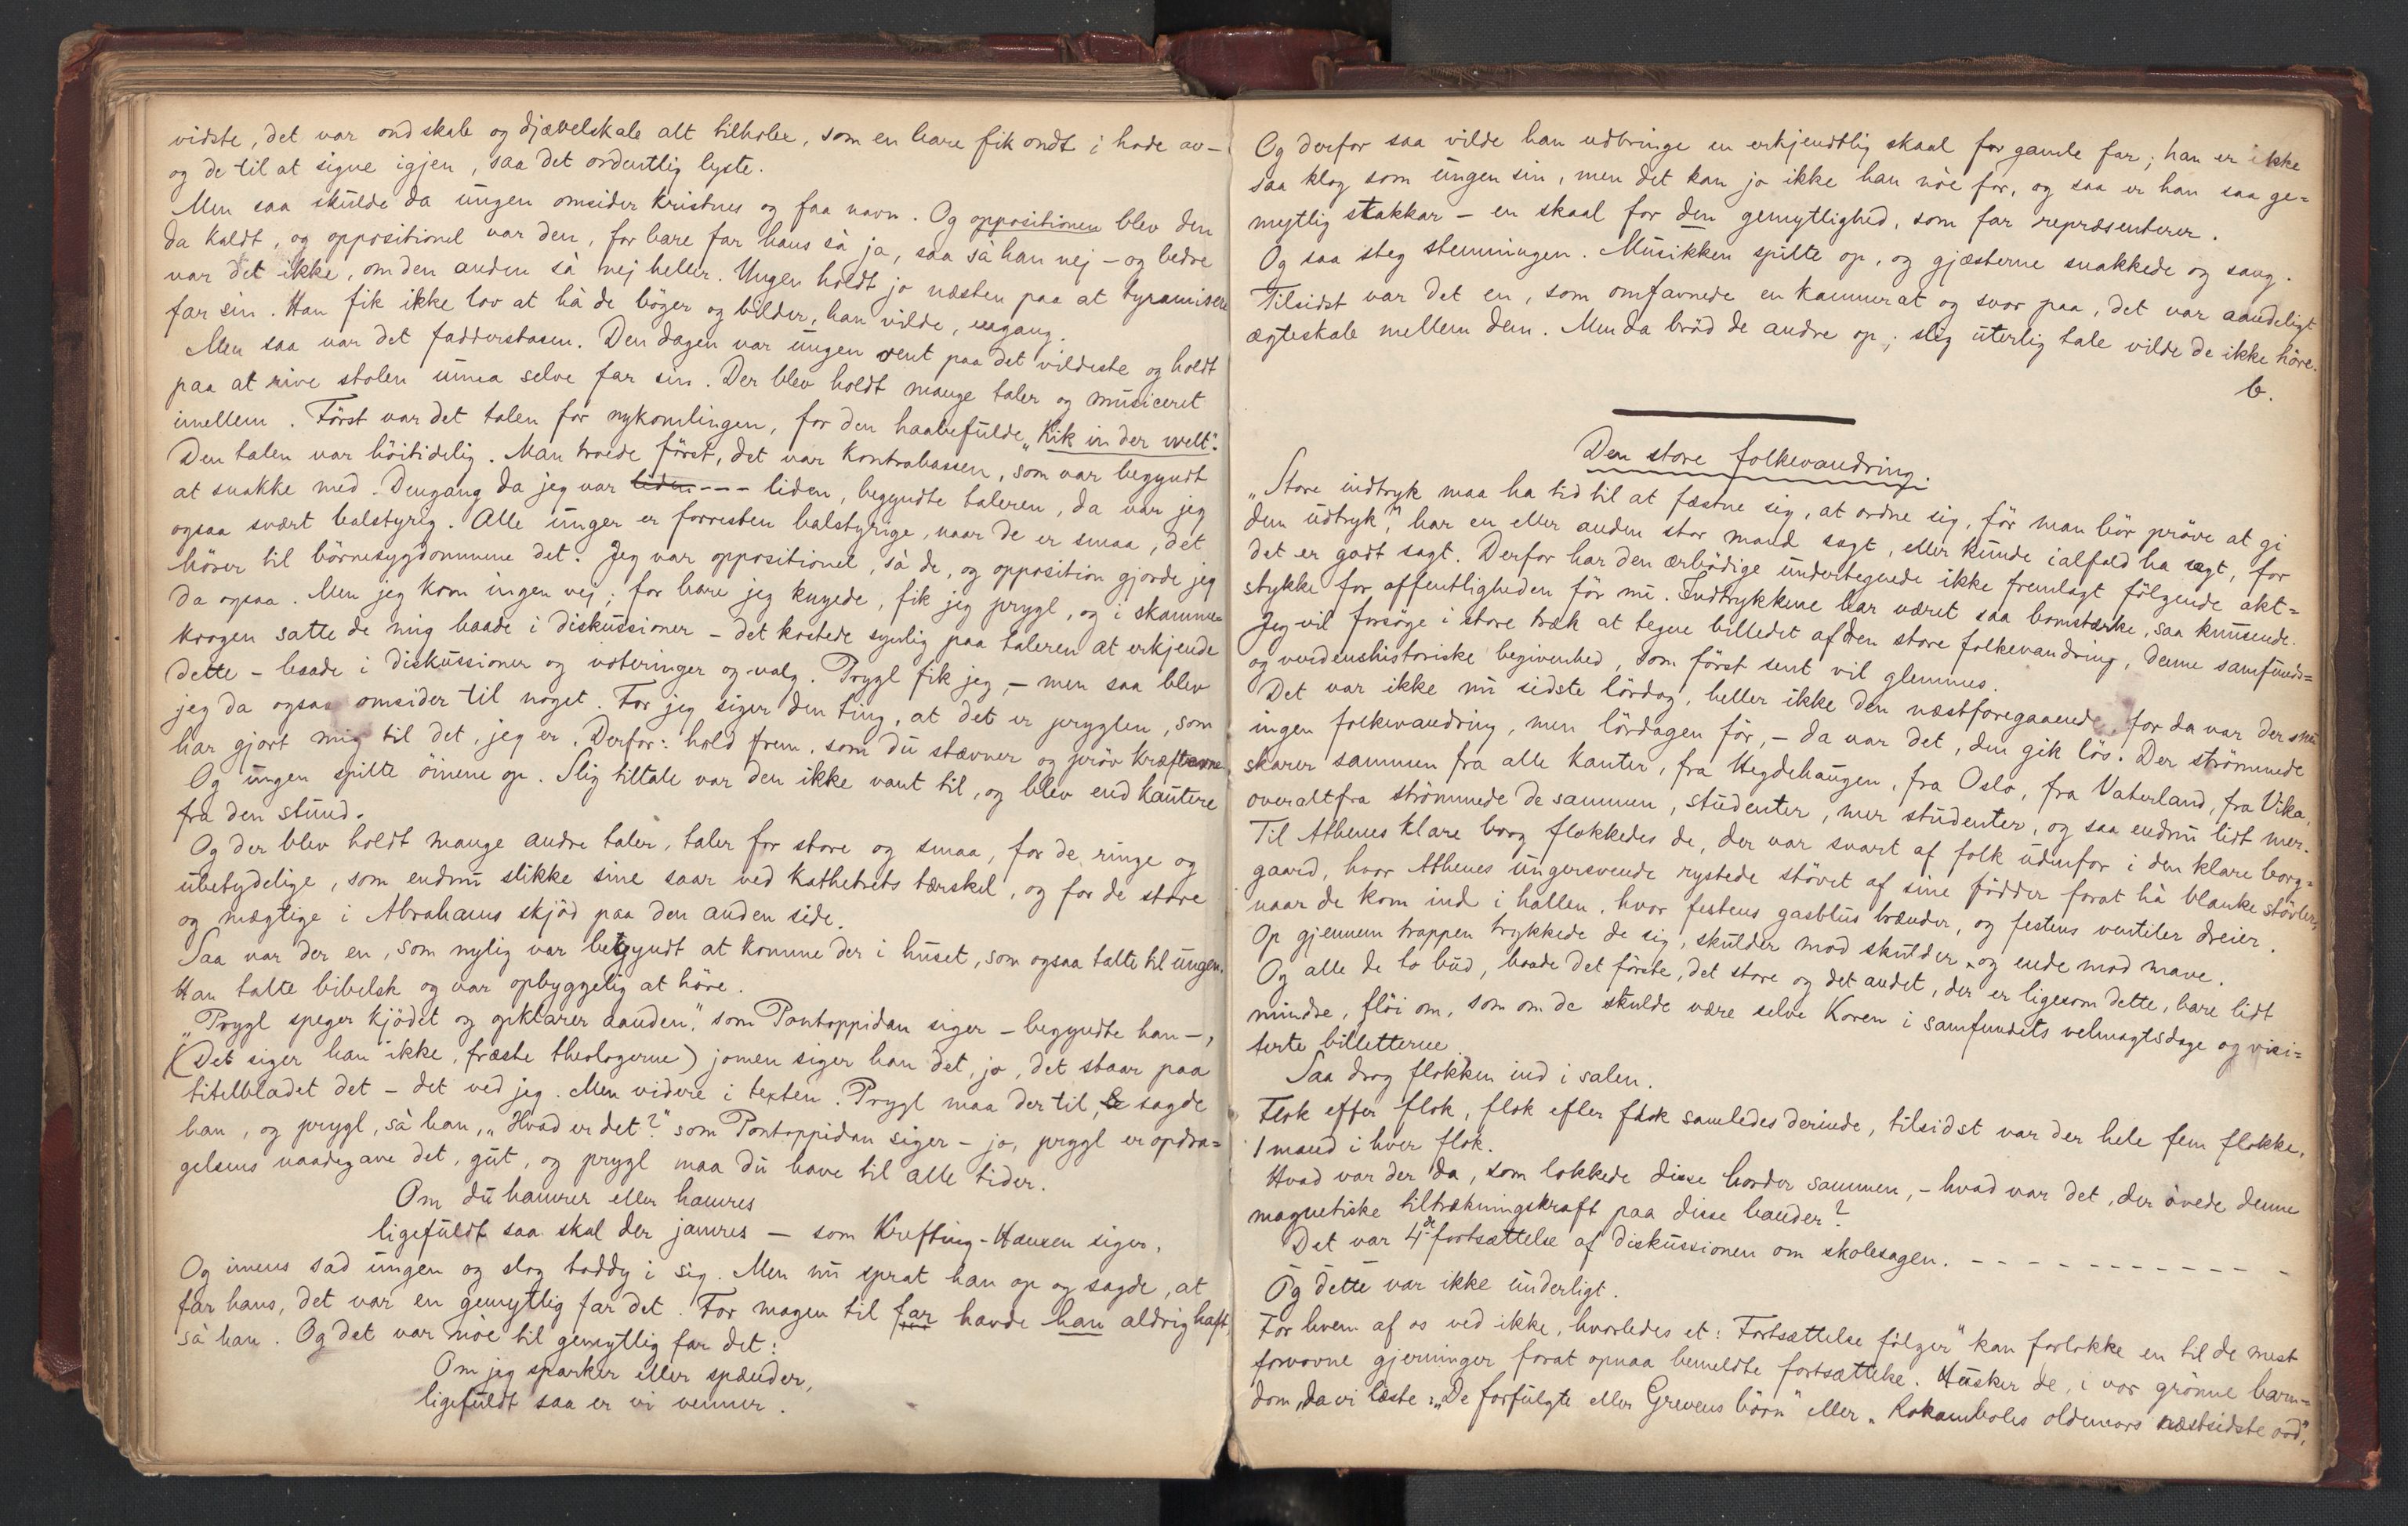 vidste, det var ondskab og djævelskab alt tilhobe, som en bare fik ondt i hode av –
og de til at signe igjen, saa det ordentlig lyste.
Men saa skulde da ungen omsider kristnes og faa navn. Og oppositionen blev den
da kaldt, og oppositionel var den, for bare far hans sà ja, saa sà han nej – og bedre
var det ikke, om den anden sà nej heller. Ungen holdt jo næsten paa at tyranisere
far sin. Han fik ikke lov at hà de böger og bilder, han vilde, engang.
Men saa var det fadderstasen. Den dagen var ungen rent paa det vildeste og holdt
paa at rive stolen unna selve far sin. Der blev holdt mange taler og musiceret
imellem. Först var det talen for nykomlingen, for den haabefulde „Kik in der welt“.
Den talen var höitidelig. Man troede först, det var kontrabassen, som var begyndt
at snakke med. Dengang da jeg var liden --- liden, begyndte taleren, da var jeg
ogsaa svært balstyrig. Alle unger er forresten balstyrige, naar de er smaa, det
hörer til börnesygdommene det. Jeg var oppositionel, sà de, og opposition gjorde jeg
da ogsaa. Men jeg kom ingen vej; for bare jeg knyede, fik jeg prygl, og i skamme-
krogen satte de mig baade i diskussioner – det kostede synlig paa taleren at erkjende
dette – baade i diskussioner og voteringer og valg. Prygl fik jeg, – men saa blev
jeg da ogsaa omsider til noget. For jeg siger den ting, at det er pryglen, som
har gjort mig til det, jeg er. Derfor: hold frem, som du stævner og pröv kræfterne
Og ungen spilte öinene op. Slig tiltale var den ikke vant til, og blev end kautere
fra den stund.
Og der blev holdt mange andre taler, taler for store og smaa, for de ringe og
ubetydelige, som endnu slikke sine saar ved kathetrets tærskel, og for de store
og mægtige i Abrahams skjöd paa den anden side.
Saa var der en, som nylig var begyndt at komme der i huset, som ogsaa talte til ungen.
Han talte bibelsk og var opbyggelig at höre.
„Prygl speger kjödet og opklarer aanden“, som Pontoppidan siger – begyndte han –,
(Det siger han ikke, fræste theologerne) jomen siger han det, jo, det staar paa
titelbladet det – det ved jeg. Men videre i texten. Prygl maa der til, sagde
han, og prygl, sà han, „Hvad er det?“ som Pontoppidan siger – jo, prygl er opdra-
gelsens naadegave det, gut, og prygl maa du have til alle tider.
Om du hamrer eller hamres
ligefuldt saa skal der jamres – som Krefting-Hansen siger.
Og imens sad ungen og slog toddy i sig. Men nu sprat han op og sagde, at
far hans, det var en gemytlig far det. For magen til far havde han aldrig haft,
sà han. Og det var nòe til gemytlig far det:
Om jeg sparker eller spænder,
ligefuldt saa er vi venner.
Og derfor saa vilde han udbringe en erkjendtlig skaal for gamle far; han er ikke
saa klog som ungen sin, men det kan jo ikke han nòe for, og saa er han saa ge-
mytlig stakkar – en skaal for den gemytlighed, som far repræsenterer.
Og saa steg stemningen. Musikken spilte op, og gjæsterne snakkede og sang.
Tilsidst var det en, som omfavnede en kammerat og svor paa, det var aandeligt
ægteskab mellem dem. Men da bröd de andre op; slig uterlig tale vilde de ikke höre.
b.
Den store folkevandring.
„Store indtryk maa ha tid til at fæstne sig, at ordne sig, för man bör pröve at gi
dem udtryk“, har en eller anden stor mand sagt, eller kunde ialfald ha sagt, for
det er godt sagt. Derfor har den ærbödige undertegnede ikke fremlagt fölgende akt-
stykke for offentligheden för nu. Indtrykkene har været saa bomstærke, saa knusende.
Jeg vil forsöge i store træk at tegne billedet af den store folkevandring, denne samfunds-
og verdenshistoriske begivenhed, som först sent vil glemmes.
Det var ikke nu sidste lördag, heller ikke den næstforegaaende, for da var der slet
ingen folkevandring, men lördagen för, – da var det, den gik lös. Der strömmede
skarer sammen fra alle kanter, fra Hegdehaugen, fra Oslo, fra Vaterland, fra Vika,
overaltfra strömmede de sammen, studenter, mer studenter, og saa endnu lidt mer.
Til Athenes klare borg flokkedes de, der var svart af folk udenfor i den klare borg-
gaard, hvor Athenes ungersvende rystede stövet af sine födder forat hà blanke stövler,
naar de kom ind i hallen, hvor festens gasblus brænder, og festens ventiler dreier.
Op gjennem trappen trykkede de sig, skulder mod skulder og ende mod mave.
Og alle de to bud, baade det förste, det store og det andet, der er ligesom dette, bare lidt
mindre, flöi om, som om de skulde være selve Koren i samfundets velmagtsdage og visi-
terte billetterne.
Saa drog flokken ind i salen.
Flok efter flok, flok efter flok samledes derinde, tilsidst var der hele fem flokke,
1 mand i hver flok.
Hvad var der da, som lokkede disse horder sammen, – hvad var det, der övede denne
magnetiske tiltrækningskraft paa disse bander?
Det var 4de fortsættelse af diskussionen om skolesagen. – – – – – – – – – – – –
Og dette var ikke underligt.
For hvem af os ved ikke, hvorledes et: „Fortsættelse fölger“ kan forlokke en til de mest
forvovne gjerninger forat opnaa bemeldte fortsættelse. Husker de, i vor grönne barn-
dom, da vi læste: „De forfulgte eller Grevens börn“ eller „Rokamboles oldemors næstsidste ord“,